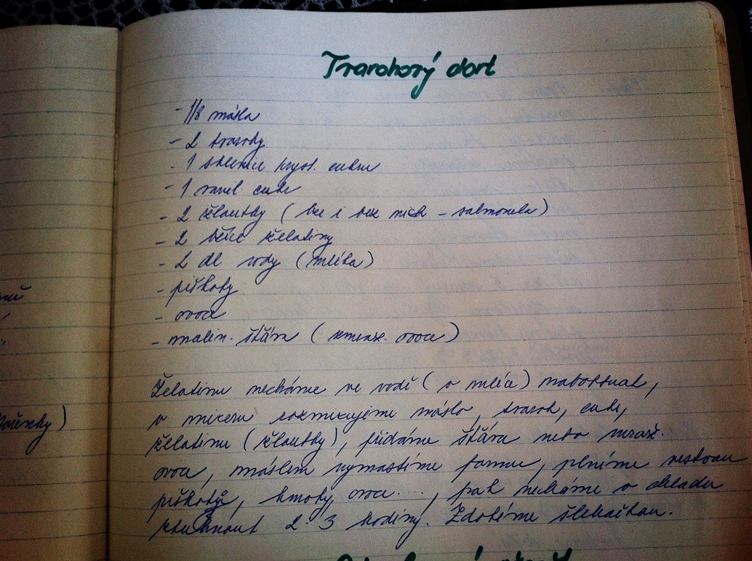 Tvarohový dort
- 1/8 másla
- 2 tvarohy
- 1 sklenice kryst. cukru
- 1 vanil. cukr
- 2 žloutky (lze i bez nich - salmonela)
- 2 lžíce želatiny
- 2 dl vody (mléka)
- piškoty
- ovoce
- malin. šťáva (zmraz. ovoce)
Želatinu necháme ve vodě (v mléce) nabobtnat,
v mixeru rozmixujeme máslo, tvaroh, cukr,
želatinu (žloutky), přidáme šťávu nebo mraž.
ovoce, máslem vymastíme formu, plníme vrstvou
piškotů, hmoty, ovoce ...., pak necháme v chladu
ztuhnout 2-3 hodiny. Zdobíme šlehačkou.